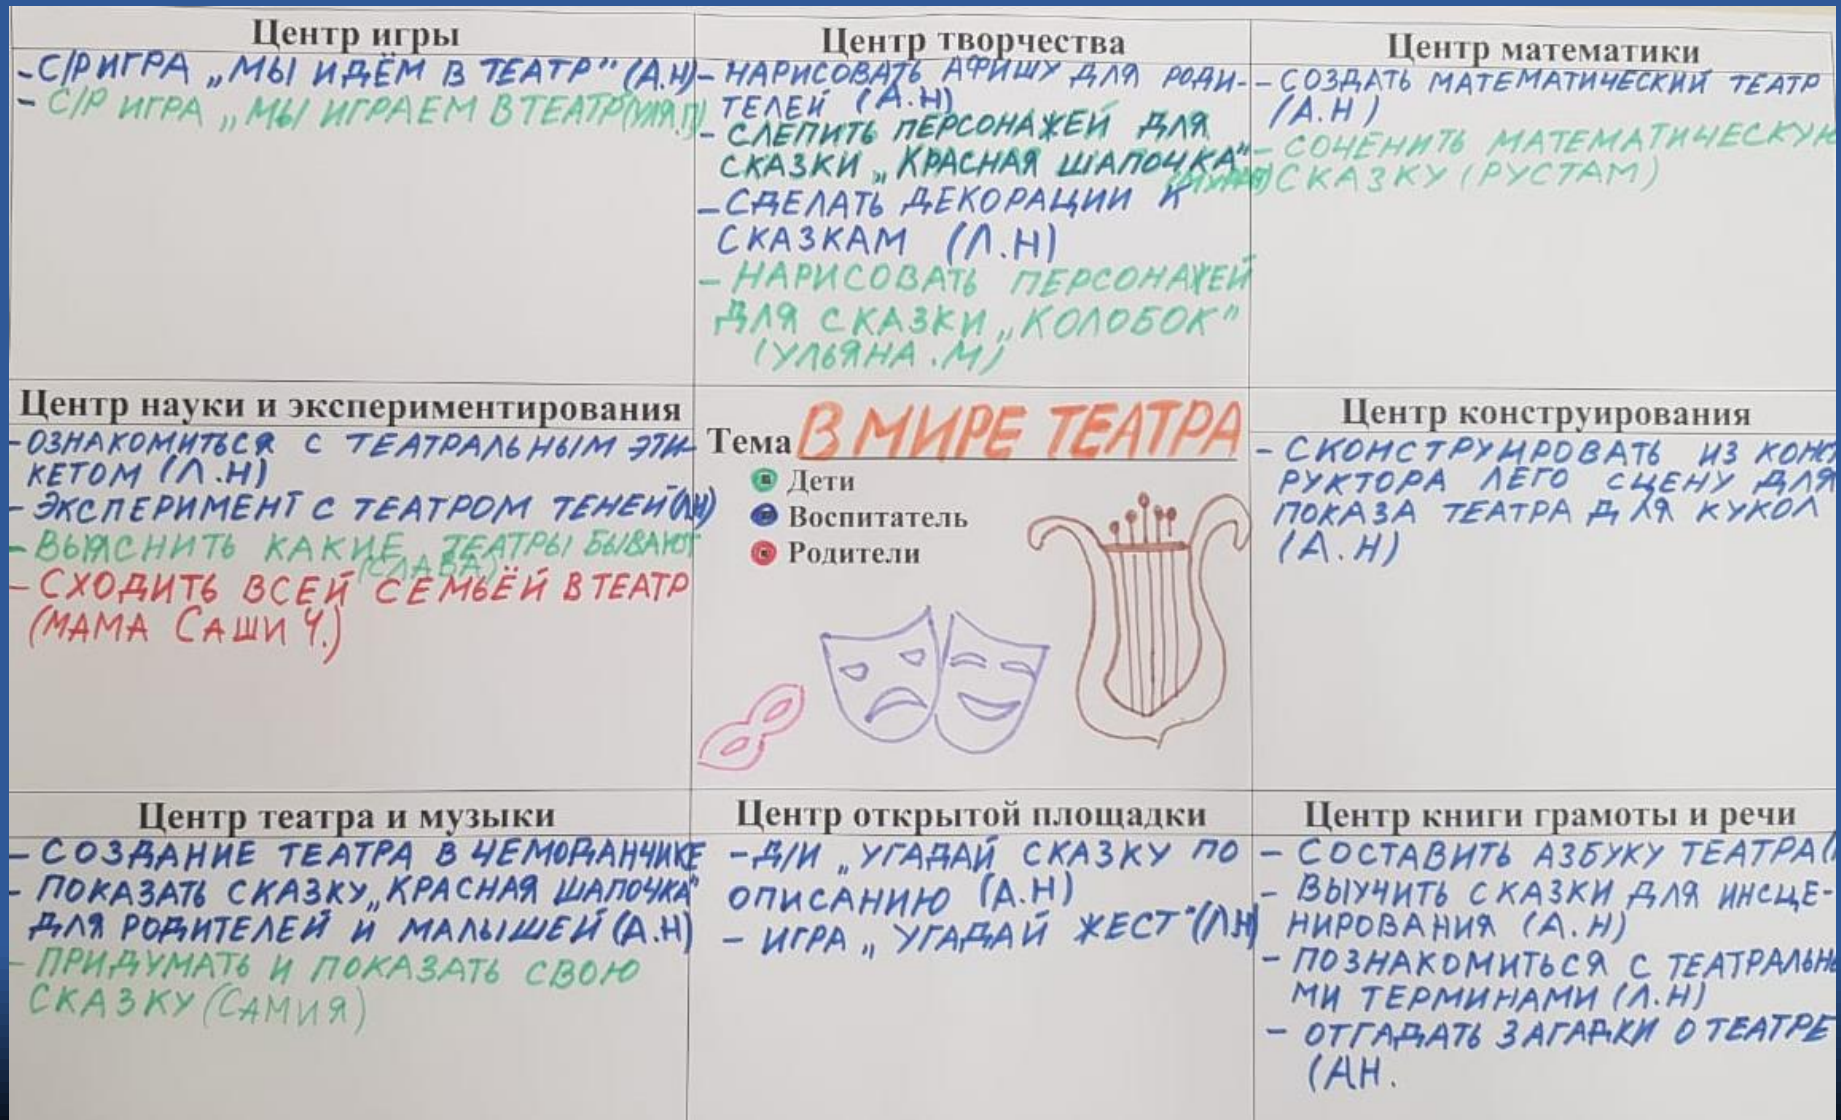 Центр игры
- С/Р ИГРА „МЫ ИДЁМ В ТЕАТР" (А.Н)
- С/Р ИГРА „МЫ ИГРАЕМ В ТЕАТР
Центр творчества
- НАРИСОВАТЬ АФИШУ ДЛЯ РОДИ-
ТЕЛЕЙ (А.Н)
- СЛЕПИТЬ ПЕРСОНАЖЕЙ ДЛЯ
СКАЗКИ „КРАСНАЯ ШАПОЧКА"
- СДЕЛАТЬ ДЕКОРАЦИИ К
СКАЗКАМ (Л.Н)
- НАРИСОВАТЬ ПЕРСОНАЖЕЙ
ДЛЯ СКАЗКИ „КОЛОБОК"
(УЛЬЯНА.М)
Центр математики
- СОЗДАТЬ МАТЕМАТИЧЕСКИЙ ТЕАТР
(А.Н)
- СОЧЕНИТЬ МАТЕМАТИЧЕСКУЮ
СКАЗКУ (РУСТАМ)
Центр науки и экспериментирования
- ОЗНАКОМИТЬСЯ С ТЕАТРАЛЬНЫМ ЭТИ-
КЕТОМ (Л.Н)
- ЭКСПЕРИМЕНТ С ТЕАТРОМ ТЕНЕЙ (Л.Н)
- ВЫЯСНИТЬ КАКИЕ ТЕАТРЫ БЫВАЮТ
(СЛАВА)
- СХОДИТЬ ВСЕЙ СЕМЬЁЙ В ТЕАТР
(МАМА САШИ Ч.)
Тема В МИРЕ ТЕАТРА
Дети
Воспитатель
Родители
Центр конструирования
- СКОНСТРУИРОВАТЬ ИЗ КОНСТ
РУКТОРА ЛЕГО СЦЕНУ ДЛЯ
ПОКАЗА ТЕАТРА ДЛЯ КУКОЛ
(А.Н)
Центр театра и музыки
- СОЗДАНИЕ ТЕАТРА В ЧЕМОДАНЧИКЕ
- ПОКАЗАТЬ СКАЗКУ „КРАСНАЯ ШАПОЧКА"
ДЛЯ РОДИТЕЛЕЙ И МАЛЫШЕЙ (А.Н)
- ПРИДУМАТЬ И ПОКАЗАТЬ СВОЮ
СКАЗКУ (САМИЯ)
Центр открытой площадки
- Д/И „УГАДАЙ СКАЗКУ ПО
ОПИСАНИЮ (А.Н)
- ИГРА „УГАДАЙ ЖЕСТ" (Л.Н)
Центр книги грамоты и речи
- СОСТАВИТЬ АЗБУКУ ТЕАТРА
- ВЫУЧИТЬ СКАЗКИ ДЛЯ ИНСЦЕ-
НИРОВАНИЯ (А.Н)
- ПОЗНАКОМИТЬСЯ С ТЕАТРАЛЬНЫ
МИ ТЕРМИНАМИ (Л.Н)
- ОТГАДАТЬ ЗАГАДКИ О ТЕАТРЕ
(АН.